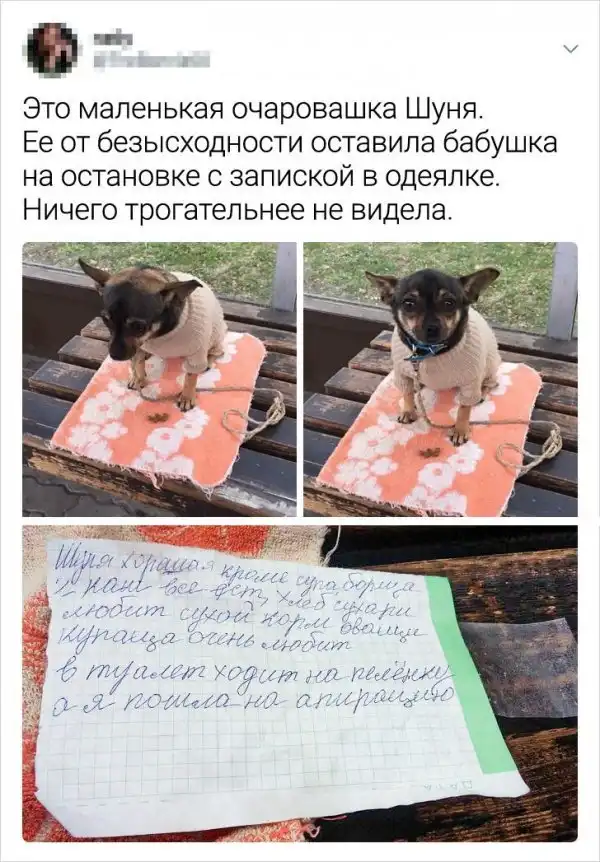 Это маленькая очаровашка Шуня.
Ее от безысходности оставила бабушка
на остановке с запиской в одеялке.
Ничего трогательнее не видела.
Шуня хорошая кроме супа борща
каш все ест, хлеб сухари
любит сухой корм оващи
купаица очень любит
в туалет ходит на пелёнку
а я пошла на апирацию